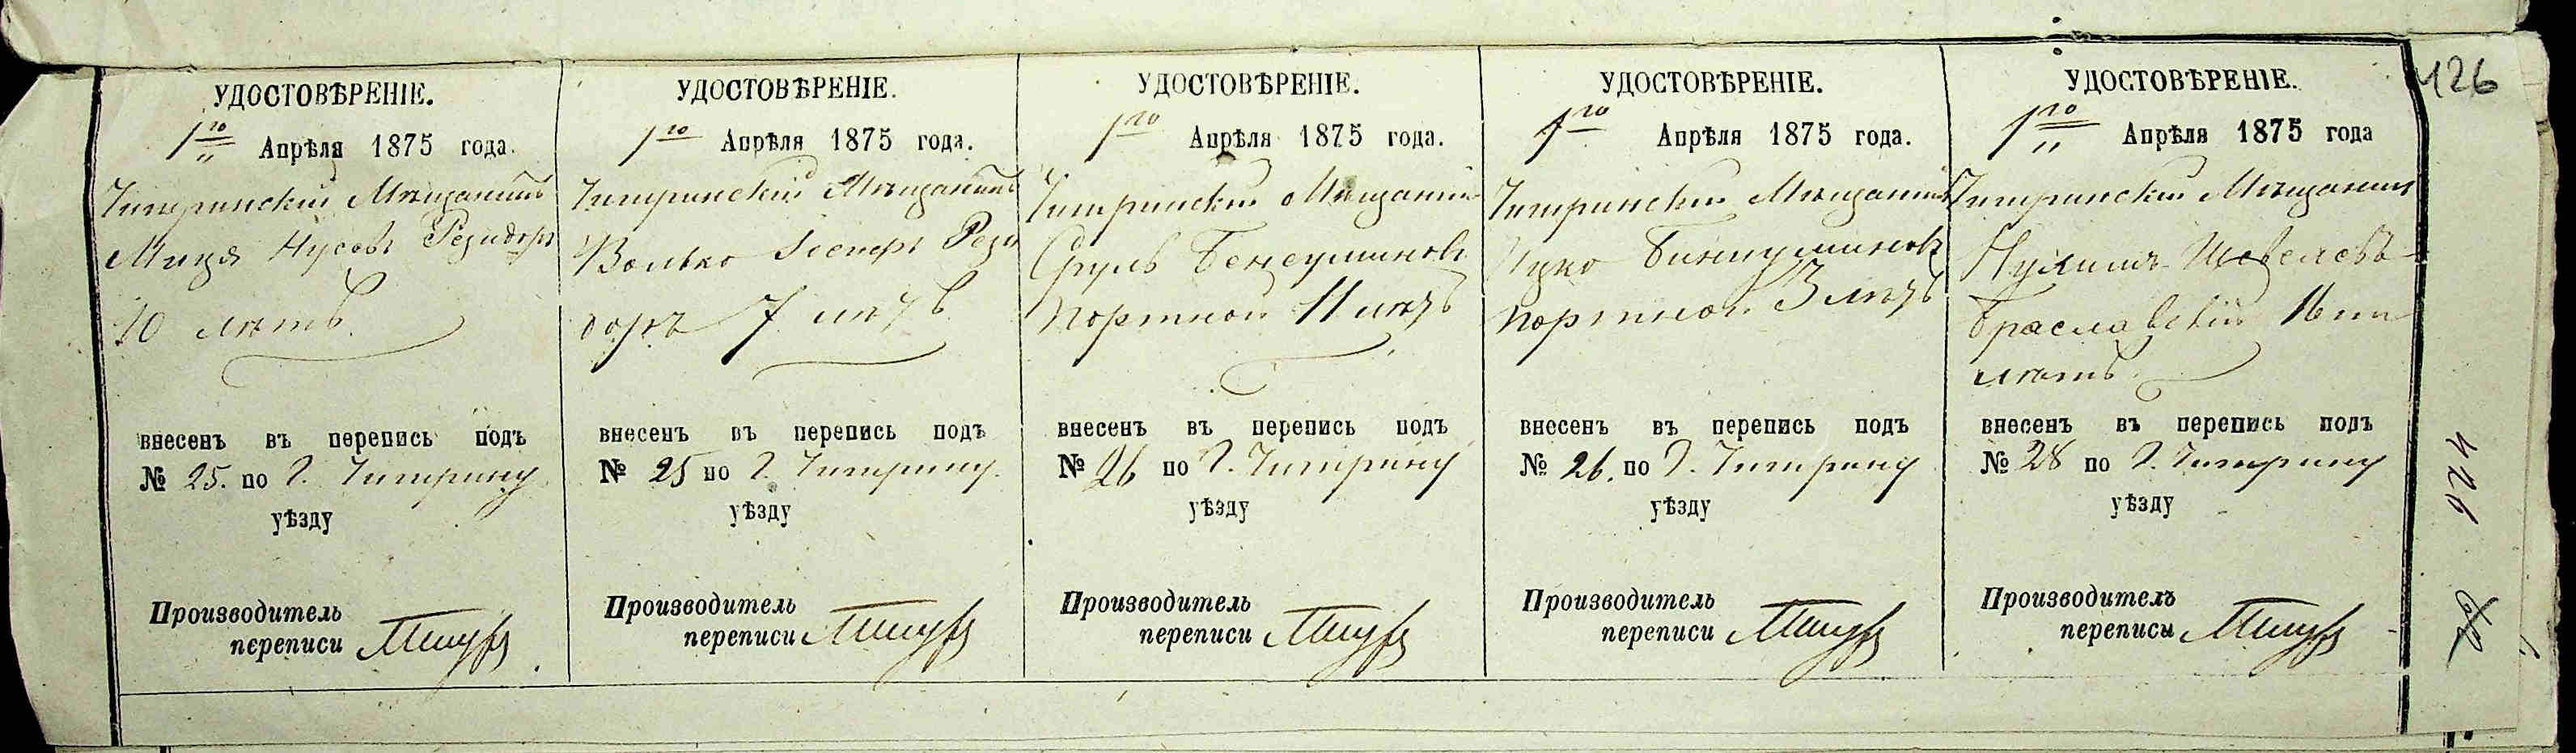 УДОСТОВѢРЕНІЕ.
1го Апрѣля 1875 года.
Чигиринскій Мѣщанинъ
Миця Нусовъ Резидоръ
10 лѣтъ
внесенъ въ перепись подъ
№ 25. по г. Чигирину
уѣзду
Производитель
переписи
УДОСТОВѢРЕНІЕ.
1го Апрѣля 1875 года.
Чигиринскій Мѣщанинъ
Волько Рези
доръ 7 лѣтъ
внесенъ въ перепись подъ
№ 25 по г. Чигирину.
уѣзду
Производитель
переписи
УДОСТОВѢРЕНІЕ.
1го Апрѣля 1875 года.
Чигиринскій Мѣщанин
Сруль Бенеуминовъ
Портной 11 лѣтъ
внесенъ въ перепись подъ
№ 26 по г. Чигирину
уѣзду
Производитель
переписи
УДОСТОВѢРЕНІЕ.
1го Апрѣля 1875 года.
Чигиринскій Мѣщанинъ
Ицко
Портной 3 лѣтъ
внесенъ въ перепись подъ
№ 26. по г. Чигирину
уѣзду
Производитель
переписи
УДОСТОВѢРЕНІЕ.
1го Апрѣля 1875 года
Чигиринскій Мѣщанин
Нухимъ Шевелевъ
Браславскій 16 ти
лѣтъ.
внесенъ въ перепись подъ
№ 28 по г. Чигирину
уѣзду
Производитель
переписи
426
426